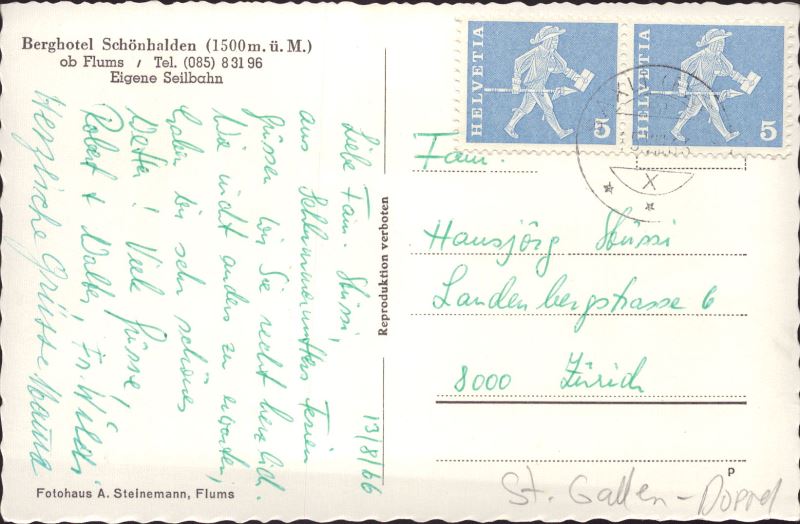 Berghotel Schönhalden (1500 m. ü. M.)
ob Flums / Tel. (085) 8 31 96
Eigene Seilbahn
13/8/66
Liebe Fam. Stüssi,
aus Ferien
grüssen wir Sie recht herzlich.
Wie nicht anders zu erwarten,
haben wir sehr schönes
Wetter! Viele Grüsse,
Robert + Walter, Fr. Wildi
Herzliche Grüsse Mama
Fotohaus A. Steinemann, Flums
Reproduktion verboten
HELVETIA
5
HELVETIA
5
X
Fam.
Hansjörg Stüssi
Landenbergstrasse 6
8000 Zürich
P
St. Gallen - Doppel